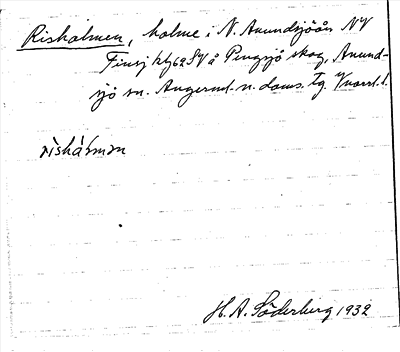 Risholmen, holme i N. Anundsjöån NV
Finsj kbl 62 SV å Pengsjö skog, Anund-
sjö sn. Ångermd. n. doms. tg. V/norrl. l.
rishɔ́lmən
H. A. Söderberg 1932